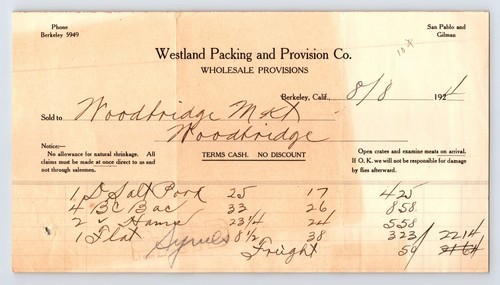 Phone
Berkeley 5949
San Pablo and
Gilman
Westland Packing and Provision Co.
WHOLESALE PROVISIONS
Berkeley, Calif., 8/8 1924
Sold to Woodbridge Mkt
Woodbridge
Notice:—
No allowance for natural shrinkage. All
claims must be made at once direct to us and
not through salesmen.
TERMS CASH. NO DISCOUNT
Open crates and examine meats on arrival.
If O. K. we will not be responsible for damage
by flies afterward.
1 D Salt Pork 25 17 425
4 BC Bac 33 26 858
2 " Hams 23 1/4 24 558
1 Flat 8 1/2 38 323 2214
Freight 50